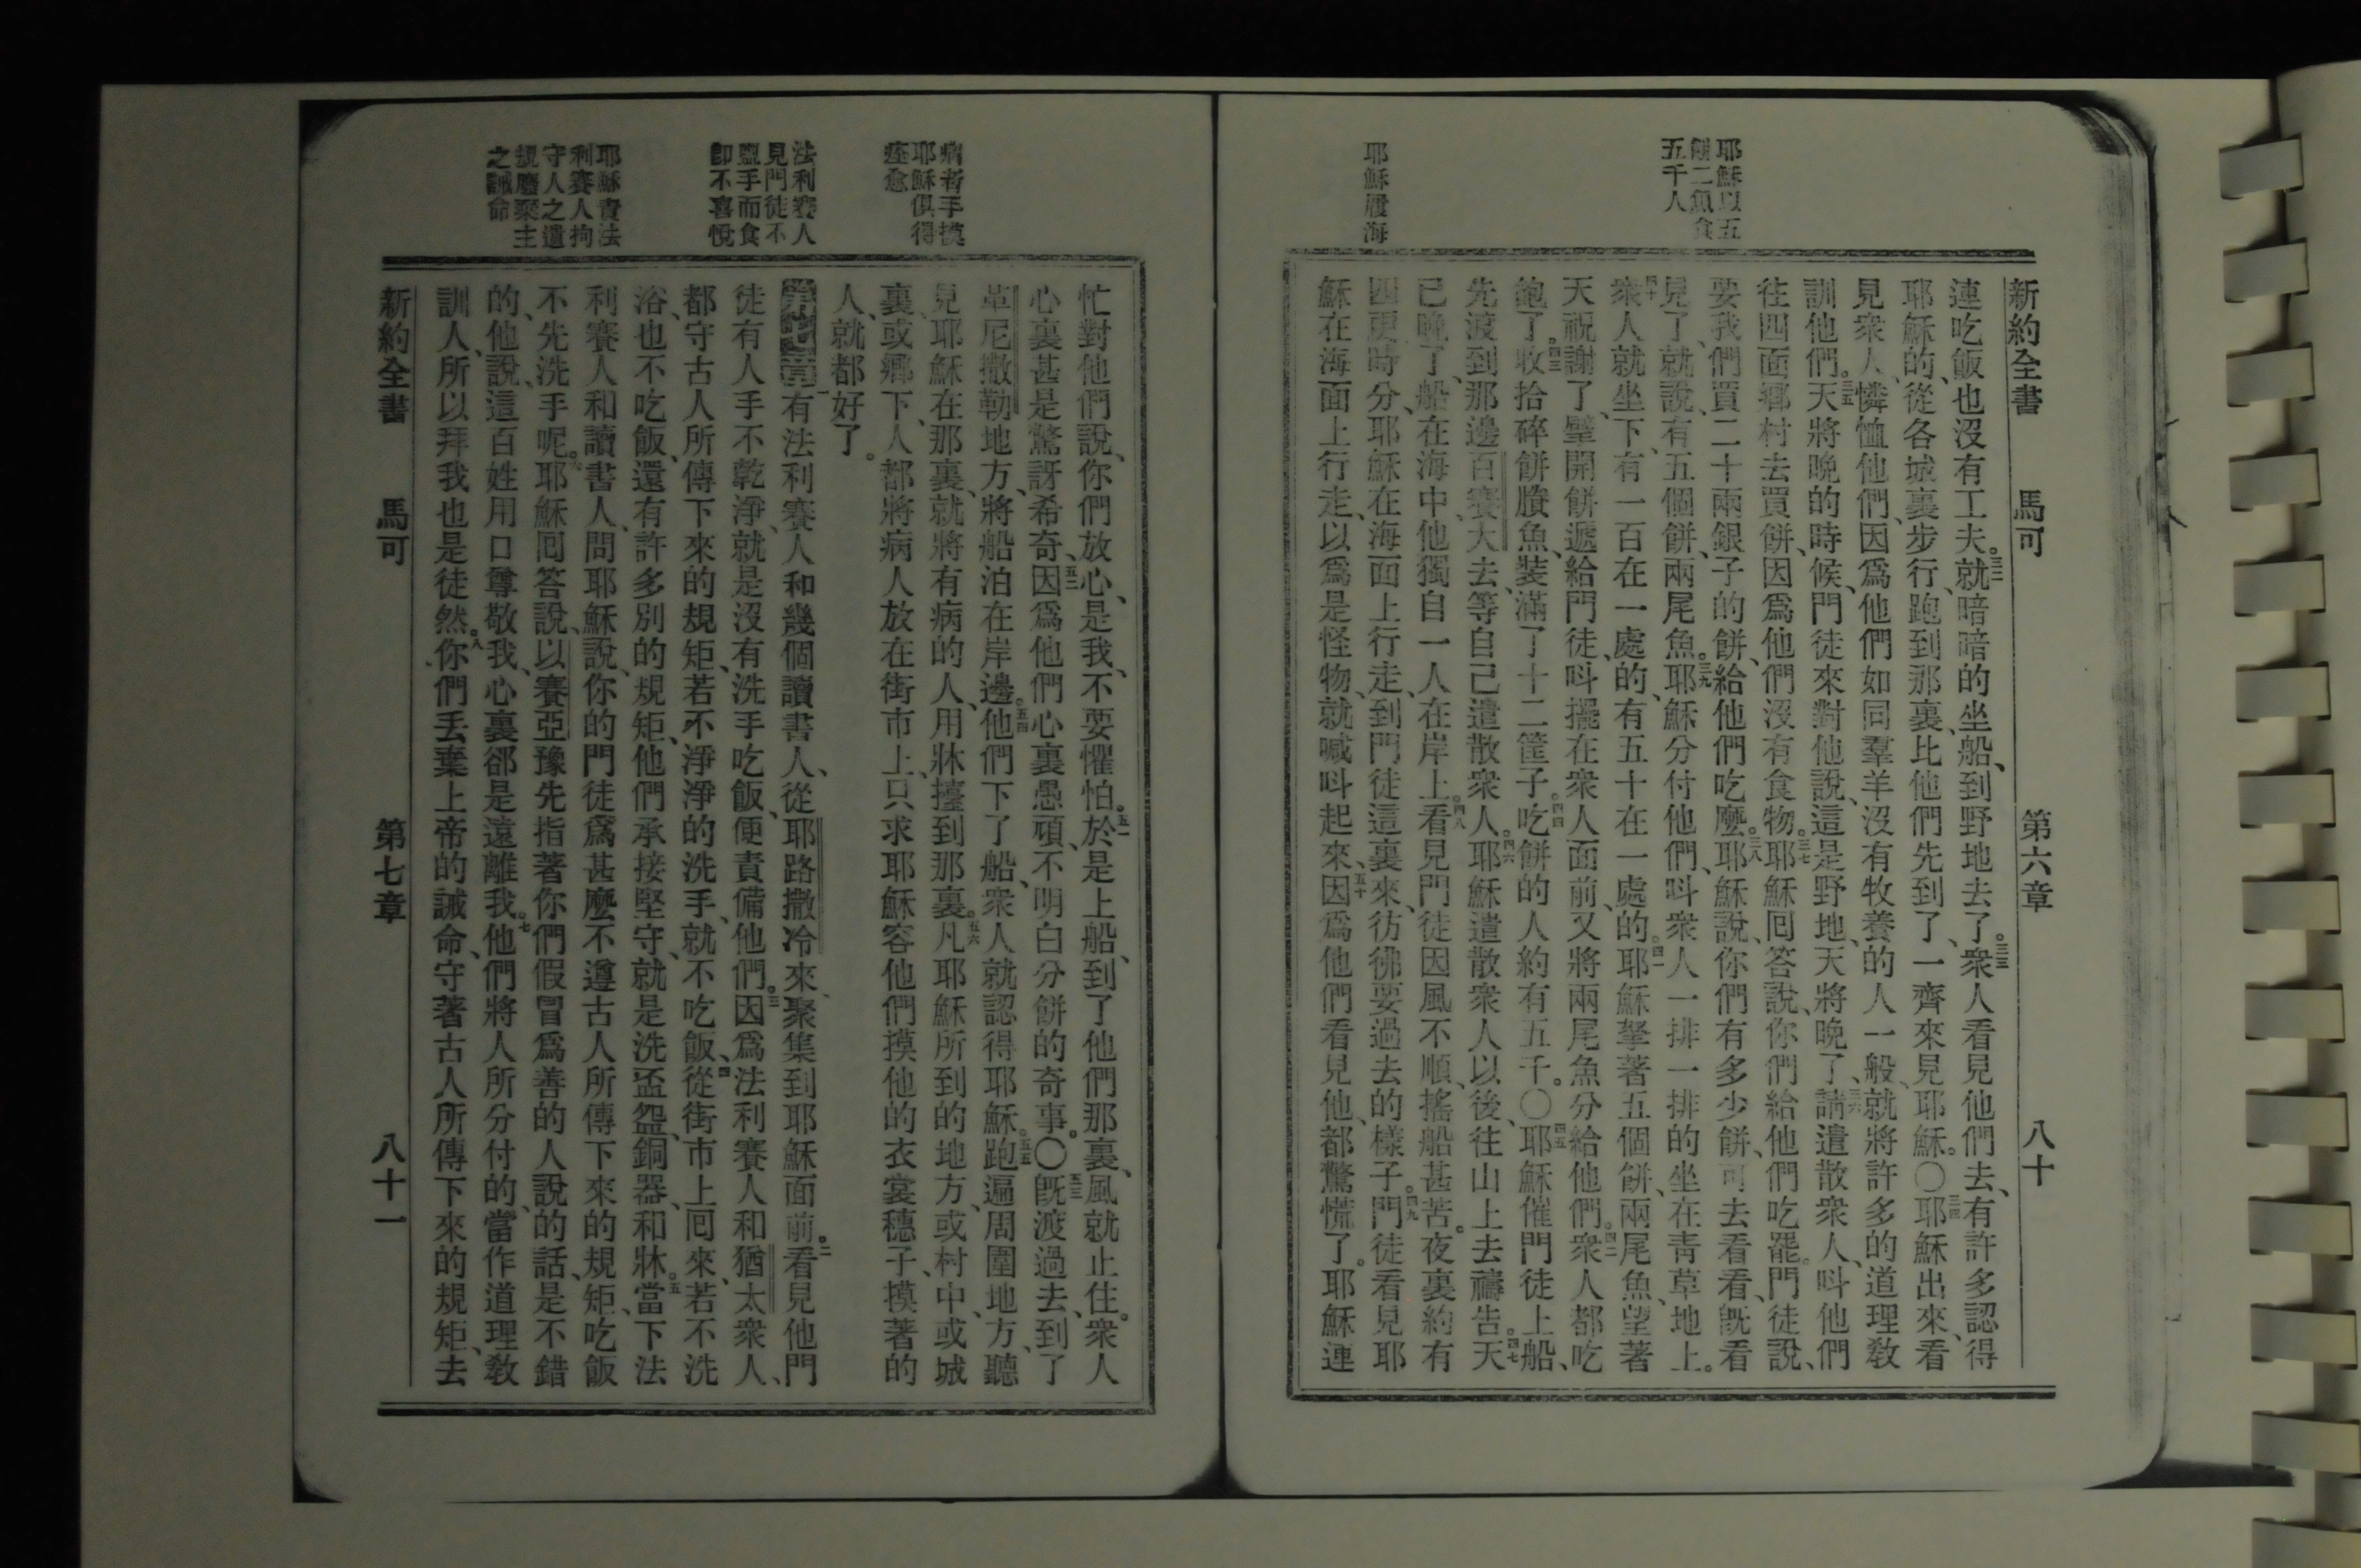 耶穌以五
餅二魚食
五千人
耶穌履海
新約全書 馬可 第六章 八十
連吃飯也沒有工夫。三二就暗暗的坐船、到野地去了。三三衆人看見他們去、有許多認得
耶穌的、從各城裏步行、跑到那裏、比他們先到了、一齊來見耶穌。〇三四耶穌出來、看
見衆人、憐恤他們、因爲他們如同羣羊沒有牧養的人一般、就將許多的道理教
訓他們。三五天將晚的時候、門徒來對他說、這是野地、天將晚了、三六請遣散衆人、呌他們
往四面鄉村去買餅、因爲他們沒有食物。三七耶穌囘答說、你們給他們吃罷。門徒說、
要我們買二十兩銀子的餅、給他們吃麼。三八耶穌說、你們有多少餅、可去看看、旣看
見了、就說、有五個餅、兩尾魚。三九耶穌分付他們、呌衆人一排一排的坐在青草地上。
四十衆人就坐下、有一百在一處的、有五十在一處的。四一耶穌拏著五個餅、兩尾魚、望著
天祝謝了、擘開餅、遞給門徒、呌擺在衆人面前、又將兩尾魚分給他們。四二衆人都吃
飽了。四三收拾碎餅賸魚、裝滿了十二筐子。四四吃餅的人約有五千。〇四五耶穌催門徒上船、
先渡到那邊百賽大去、等自己遣散衆人。四六耶穌遣散衆人以後、往山上去禱告。四七天
已晚了、船在海中、他獨自一人在岸上。四八看見門徒因風不順、搖船甚苦。夜裏約有
四更時分、耶穌在海面上行走、到門徒這裏來、彷彿要過去的樣子。四九門徒看見耶
穌在海面上行走、以爲是怪物、就喊呌起來、五十因爲他們看見他、都驚慌了。耶穌連
病者手摸
耶穌俱得
痊愈
法利賽人
見門徒不
盥手而食
卽不喜悅
耶穌責法
利賽人拘
守人之遺
規廢棄主
之誡命
忙對他們說、你們放心、是我、不要懼怕。五一於是上船、到了他們那裏、風就止住。衆人
心裏甚是驚訝希奇、五二因爲他們心裏愚頑、不明白分餅的奇事。〇五三旣渡過去、到了
革尼撒勒地方、將船泊在岸邊。五四他們下了船、衆人就認得耶穌。五五跑遍周圍地方、聽
見耶穌在那裏、就將有病的人、用牀擡到那裏。五六凡耶穌所到的地方、或村中、或城
裏、或鄉下、人都將病人放在街市上、只求耶穌容他們摸他的衣裳穗子、摸著的
人、就都好了。
第七章一有法利賽人和幾個讀書人、從耶路撒冷來、聚集到耶穌面前。二看見他門
徒有人手不乾淨、就是沒有洗手吃飯、便責備他們。三因爲法利賽人和猶太衆人、
都守古人所傳下來的規矩、若不淨淨的洗手、就不吃飯、四從街市上囘來、若不洗
浴、也不吃飯、還有許多別的規矩、他們承接堅守、就是洗盃盌、銅器、和牀。五當下法
利賽人和讀書人、問耶穌說、你的門徒爲甚麼不遵古人所傳下來的規矩、吃飯
不先洗手呢。六耶穌囘答說、以賽亞豫先指著你們假冒爲善的人說的話、是不錯
的、他說、這百姓用口尊敬我、心裏郤是遠離我。七他們將人所分付的、當作道理敎
訓人、所以拜我也是徒然。八你們丟棄上帝的誡命、守著古人所傳下來的規矩、去
新約全書 馬可 第七章 八十一